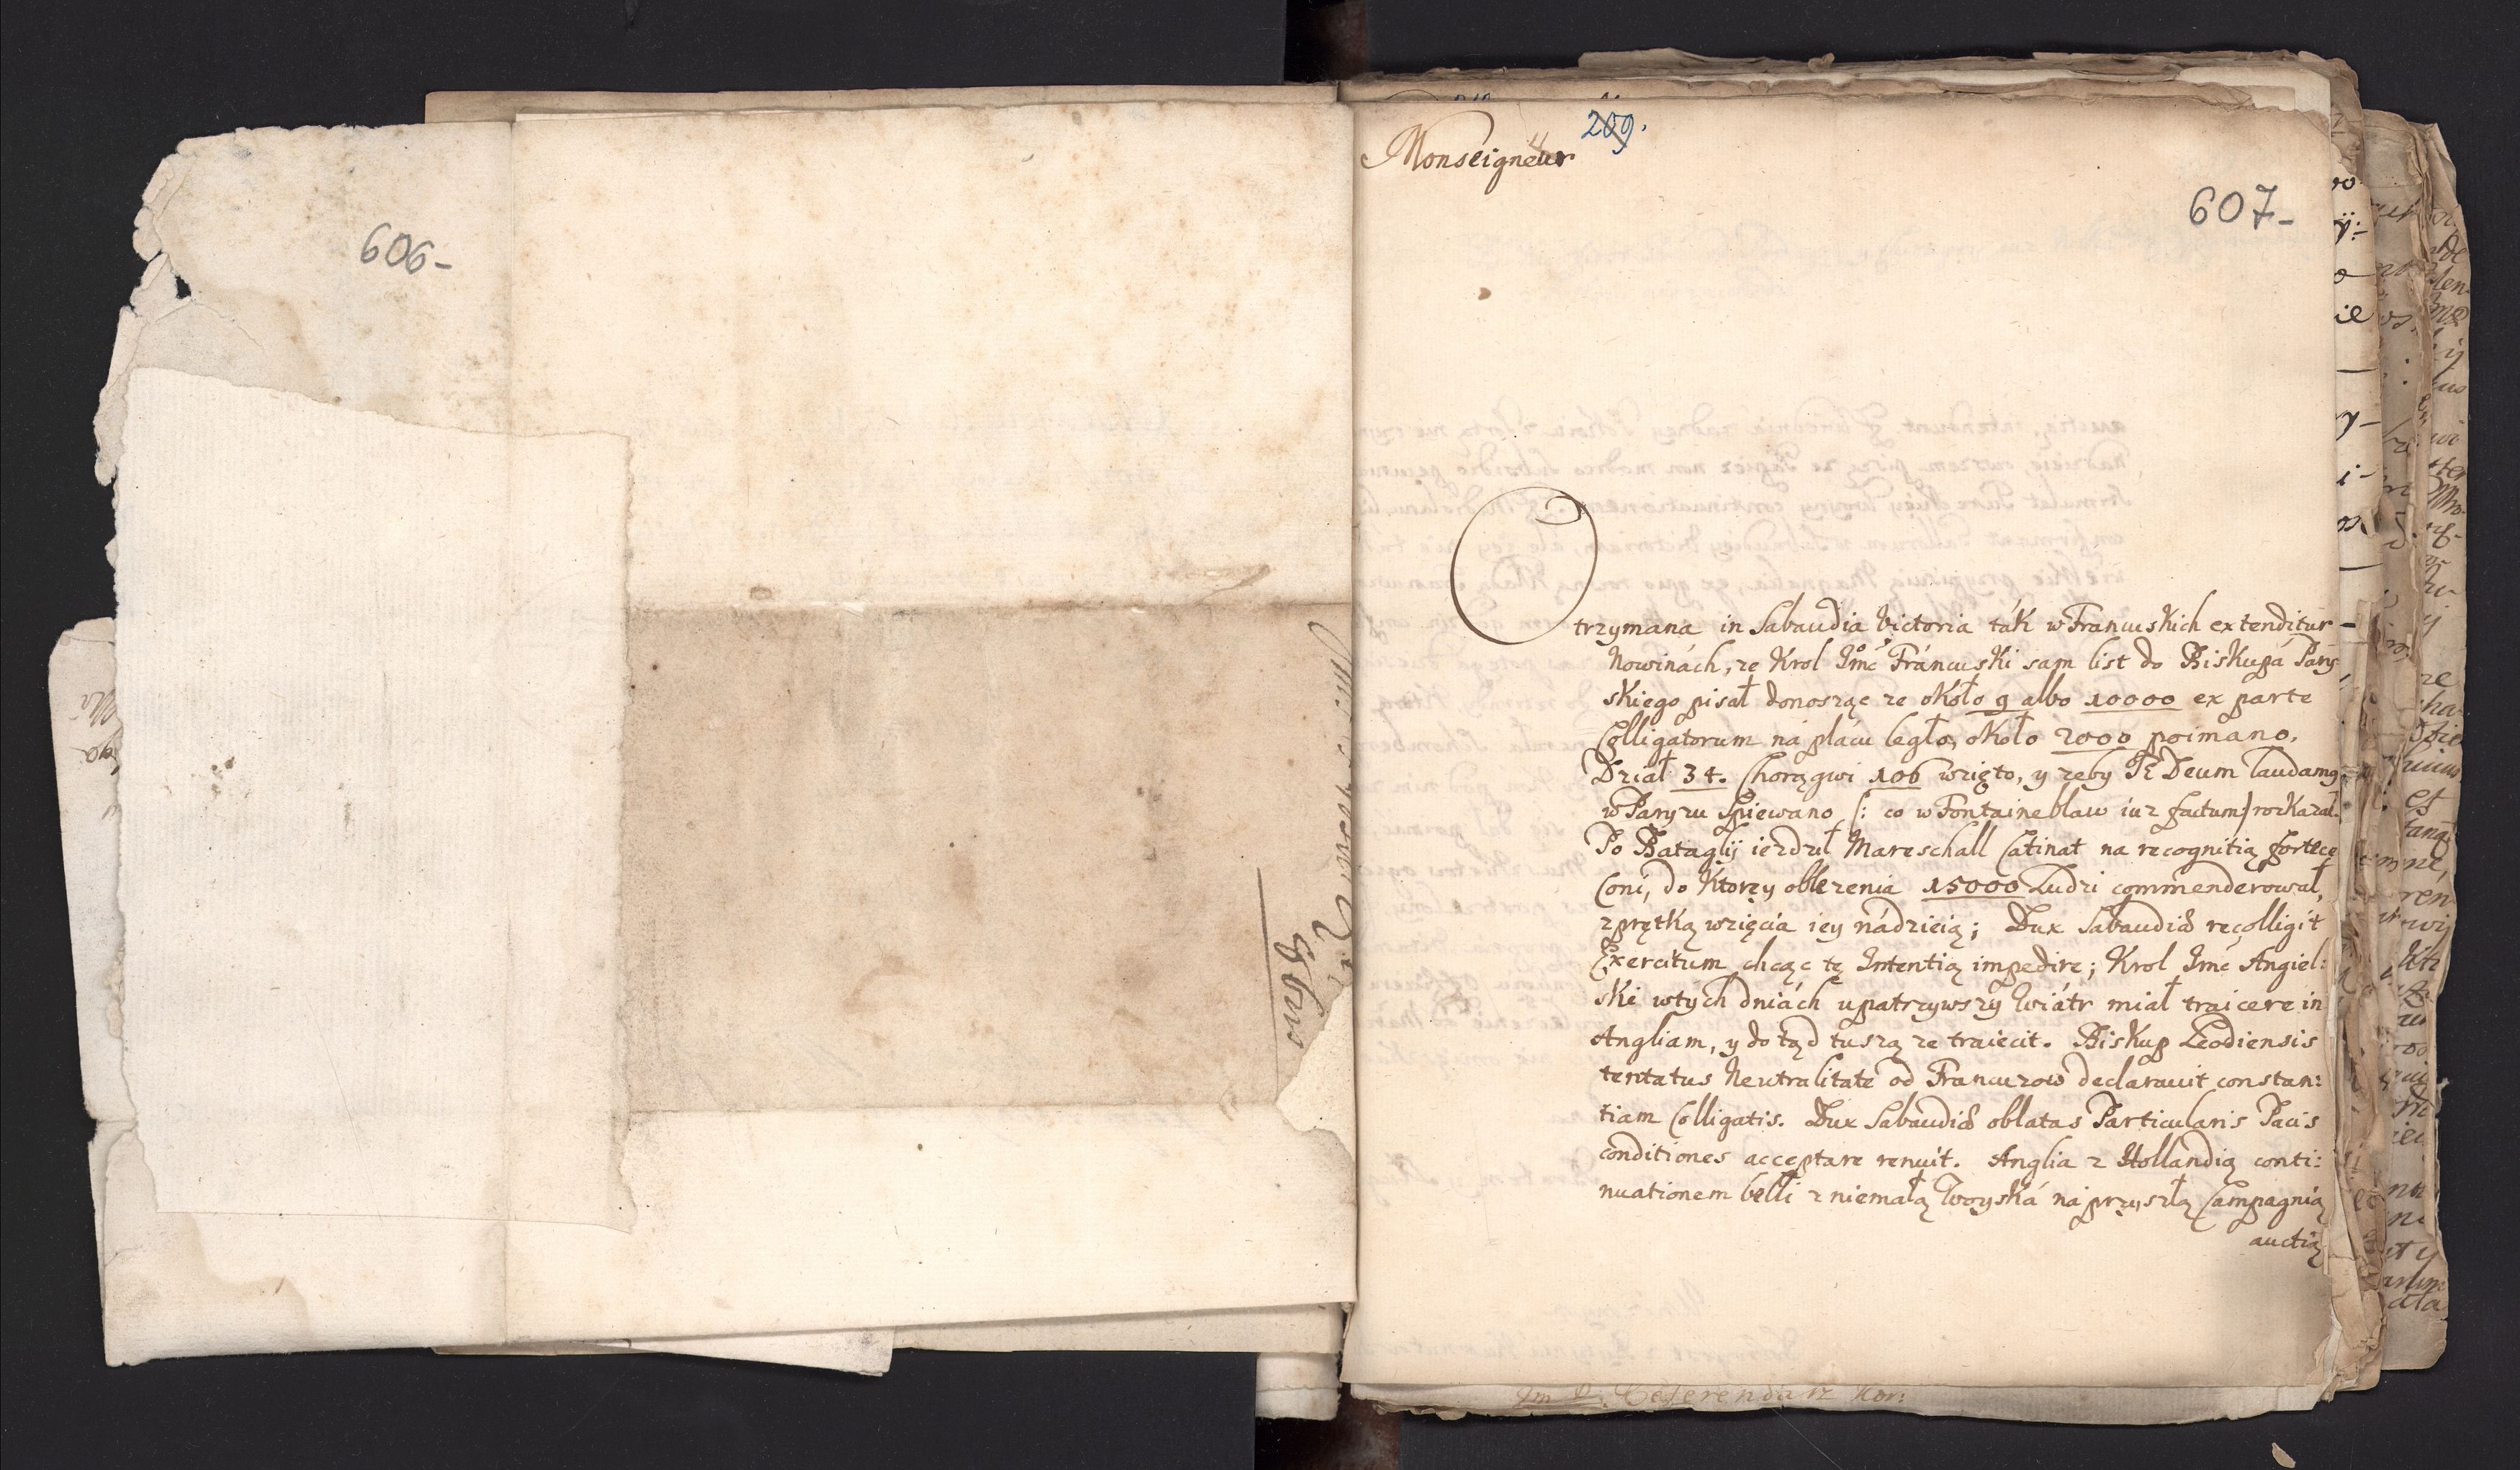 606-
209.
Monseigneur
607-
Otrzymana in Sabaudia Victoria ták w Francuskich extenditur
Nowinách, ze Krol Jmć Fráncuski sam list do Biskupá Pary
skiego pisał donosząc ze około 9 albo 10000 ex parte
Colligatorum ná placu legło, około 2000 poimano,
Dział 34. Chorągwi 106 wzięto, y zeby Te Deum laudamus
w Paryzu spiewano /: co w Fontaineblaw iuz factum/ rozkazał.
Po Bataglij iezdził Mareschall Catinat na recognitią fortece
Coni, do ktorey oblezenia 15000 Ludzi commenderował,
z prętką wzięcia iey nádzieią; Dux Sabaudiæ recolligit
Exercitum chcąc tę Intentią impedire; Krol Jmć Angiel:
ski w tych dniách upatrzywszy Wiátr miał traicere in
Angliam, y do tąd tuszą ze traiecit. Biskup Leodiensis
tentatus Neutralitate od Francuzow declarauit constan:
tiam Colligatis. Dux Sabaudiæ oblatas Particularis Pacis
conditiones acceptare renuit. Anglia z Hollandią conti:
nuationem belli z niemałą Woyská na przyszłą Campagnią
auctią
Referendarz Kor: